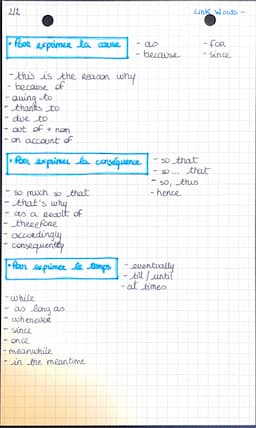 2/2
Link Words -
• Pour exprimer la cause
- as
- because
- for
- since
- this is the reason why
- because of
- owing to
- thanks to
- due to
- out of + nom
- on account of
• Pour exprimer la conséquence
- so that
- so ... that
- so, thus
- hence
- so much so that
- that's why
- as a result of
- therefore
- accordingly
- consequently
• Pour exprimer le temps
- eventually
- till / until
- at times
- while
- as long as
- whenever
- since
- once
- meanwhile
- in the meantime